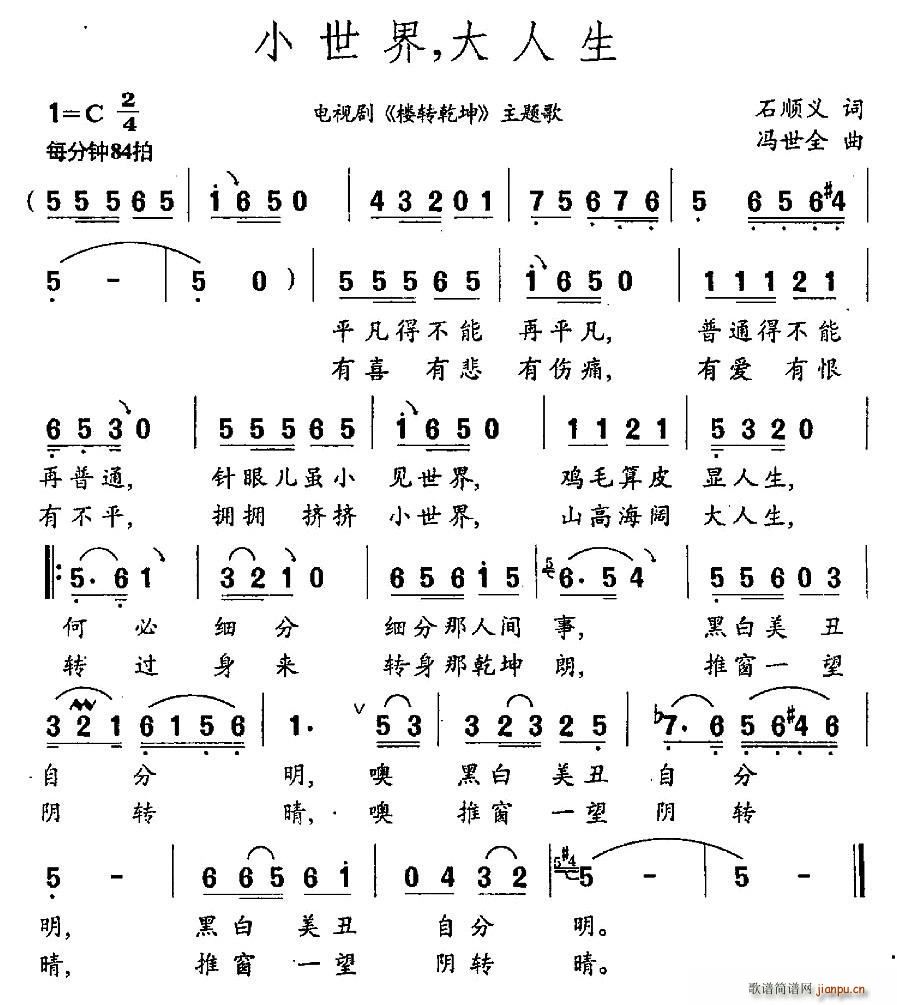 小世界,大人生
1=C 2/4
电视剧《楼转乾坤》主题歌
石顺义 词
每分钟84拍
冯世全 曲
( 5 5 5 6 5 | 1 6 5 0 | 4 3 2 0 1 | 7 5 6 7 6 | 5 6 5 6 #4 |
5 - | 5 0 ) | 5 5 5 6 5 | 1 6 5 0 | 1 1 1 2 1 |
平凡得不能 再平凡, 普通得不能
有喜 有悲 有伤痛, 有爱 有恨
6 5 3 0 | 5 5 5 6 5 | 1 6 5 0 | 1 1 2 1 | 5 3 2 0 |
再普通, 针眼儿虽小 见世界, 鸡毛算皮 显人生,
有不平, 拥拥 挤挤 小世界, 山高海阔 大人生,
‖: 5. 6 1 | 3 2 1 0 | 6 5 6 1 5 | 5 6. 5 4 | 5 5 6 0 3 |
何必 细分 细分那人间 事, 黑白美丑
转过 身来 转身那乾坤 朗, 推窗一望
3 2 1 6 1 5 6 | 1. ∨ 5 3 | 3 2 3 2 5 | b7. 6 5 6 #4 6 |
自分 明, 噢 黑白 美丑 自分
阴转 晴, 噢 推窗 一望 阴转
5 - | 6 6 5 6 1 | 0 4 3 2 | 5 #4 5 - | 5 - ‖
明, 黑白 美丑 自分 明。
晴, 推窗 一望 阴转 晴。
歌谱简谱网
jianpu.cn